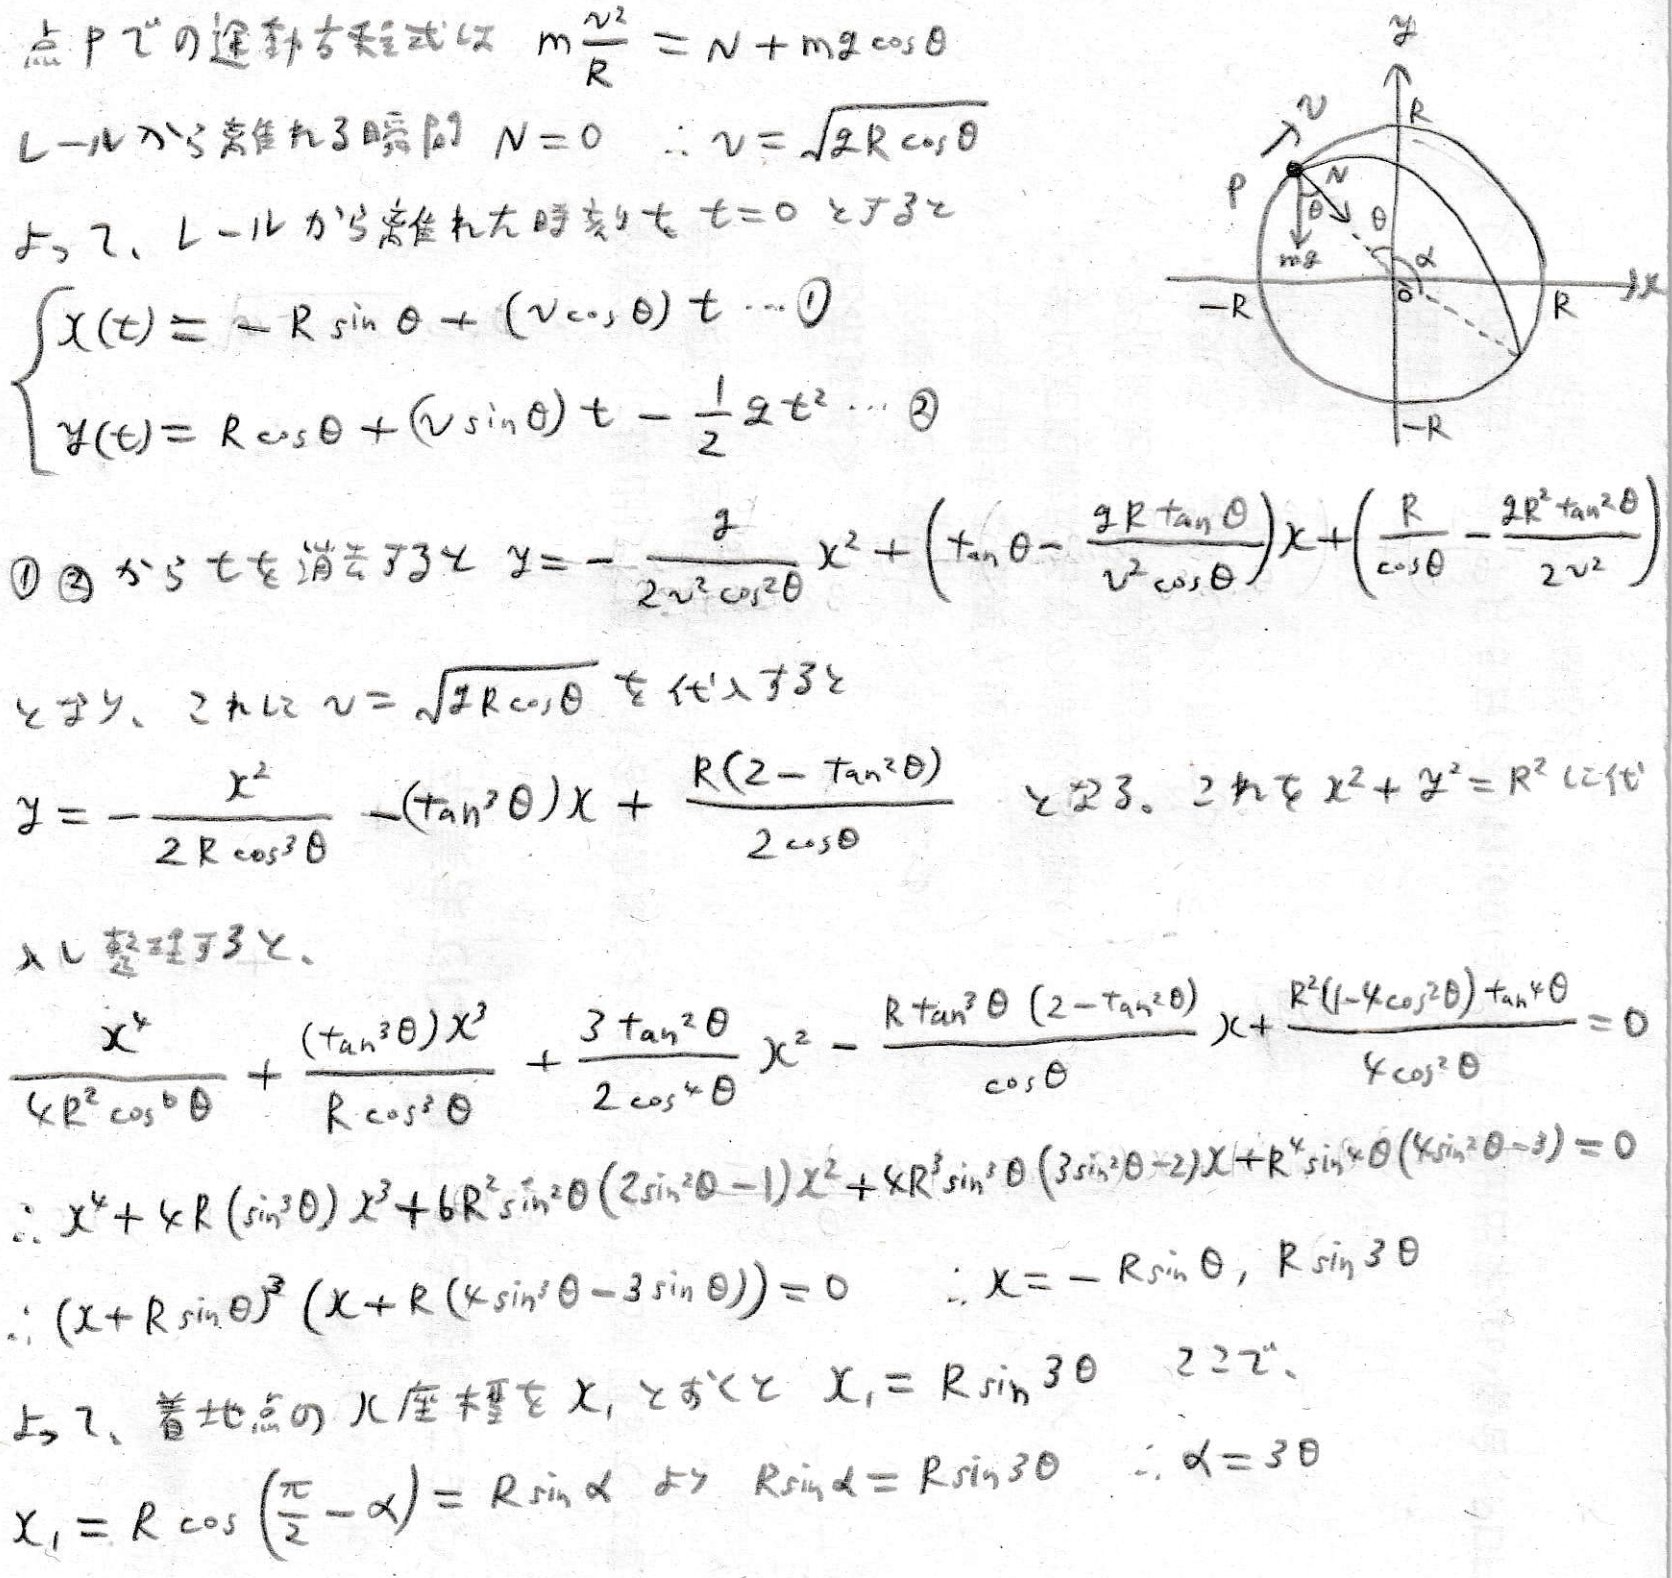 点Pでの運動方程式は m v²/R = N + mg cosθ
レールから離れる瞬間 N = 0 ∴ v = √(gR cosθ)
よって、レールから離れた時刻を t = 0 とすると
x(t) = - R sin θ + (v cos θ) t … ①
y(t) = R cos θ + (v sin θ) t - 1/2 g t² … ②
① ② から t を消去すると y = - g/(2v² cos²θ) x² + (tan θ - gR tan θ/(v² cos θ)) x + (R/cosθ - gR² tan²θ/(2v²))
となり、これに v = √(gR cosθ) を代入すると
y = - x²/(2R cos³θ) - (tan³θ) x + R(2 - tan²θ)/(2 cosθ) となる。これを x² + y² = R² に代
入し整理すると、
x⁴/(4R² cos⁶θ) + (tan³θ) x³/(R cos³θ) + 3 tan²θ/(2 cos⁴θ) x² - R tan³θ (2 - tan²θ)/cosθ x + R²(1 - 4cos²θ) tan⁴θ/(4cos²θ) = 0
∴ x⁴ + 4R (sin³θ) x³ + 6R² sin²θ (2sin²θ - 1) x² + 4R³ sin³θ (3sin²θ - 2) x + R⁴ sin⁴θ (4sin²θ - 3) = 0
∴ (x + R sin θ)³ (x + R (4 sin³θ - 3 sin θ)) = 0 ∴ x = - R sin θ, R sin 3θ
よって、着地点の x 座標を x₁ とおくと x₁ = R sin 3θ ここで、
x₁ = R cos (π/2 - α) = R sin α より R sin α = R sin 3θ ∴ α = 3θ
y
R
v
P
N
θ
θ
mg
α
-R
O
R
x
-R